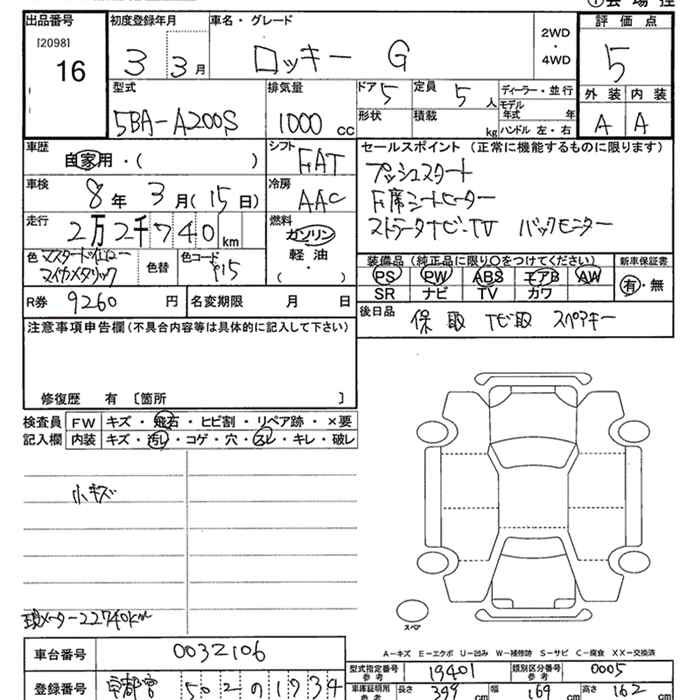 出品番号 初度登録年月 車名・グレード 評価点
[2098] 16 3 3月 ロッキー G 2WD・4WD 5
型式 排気量 ドア 5 定員 5人 ディーラー・並行 外装 内装
5BA-A200S 1000cc 形状 積載 kg モデル年式 年 ハンドル 左・右 A A
車歴 自家用・( ) シフト FAT セールスポイント(正常に機能するものに限ります)
車検 8年 3月(15日) 冷房 AAC プッシュスタート
F席シートヒーター
走行 2万2千740km 燃料 ガソリン 軽油 ( ・ ) TV バックモニター
色 マイカメタリック 色替 色コード 装備品(純正品に限り○をつけてください) 新車保証書
PS PW ABS エアB AW 有・無
R券 9260円 名変期限 月 日 SR ナビ TV カワ
注意事項申告欄(不具合内容等は具体的に記入して下さい) 後日品 保 取 ナビ取 スペアキー
修復歴 有 [箇所 ]
検査員 FW キズ・飛石・ヒビ割・リペア跡・×要
記入欄 内装 キズ・汚レ・コゲ・穴・スレ・キレ・破レ
小キズ
現メーター22740km
スペア
A-キズ E-エクボ U-凹み W-補修跡 S-サビ C-腐食 XX-交換済
車台番号 0032106 型式指定番号 参考 19401 類別区分番号 参考 0005
登録番号 宇都宮 502 の 1934 車庫証明用 参考 長さ 399cm 幅 169cm 高さ 162cm